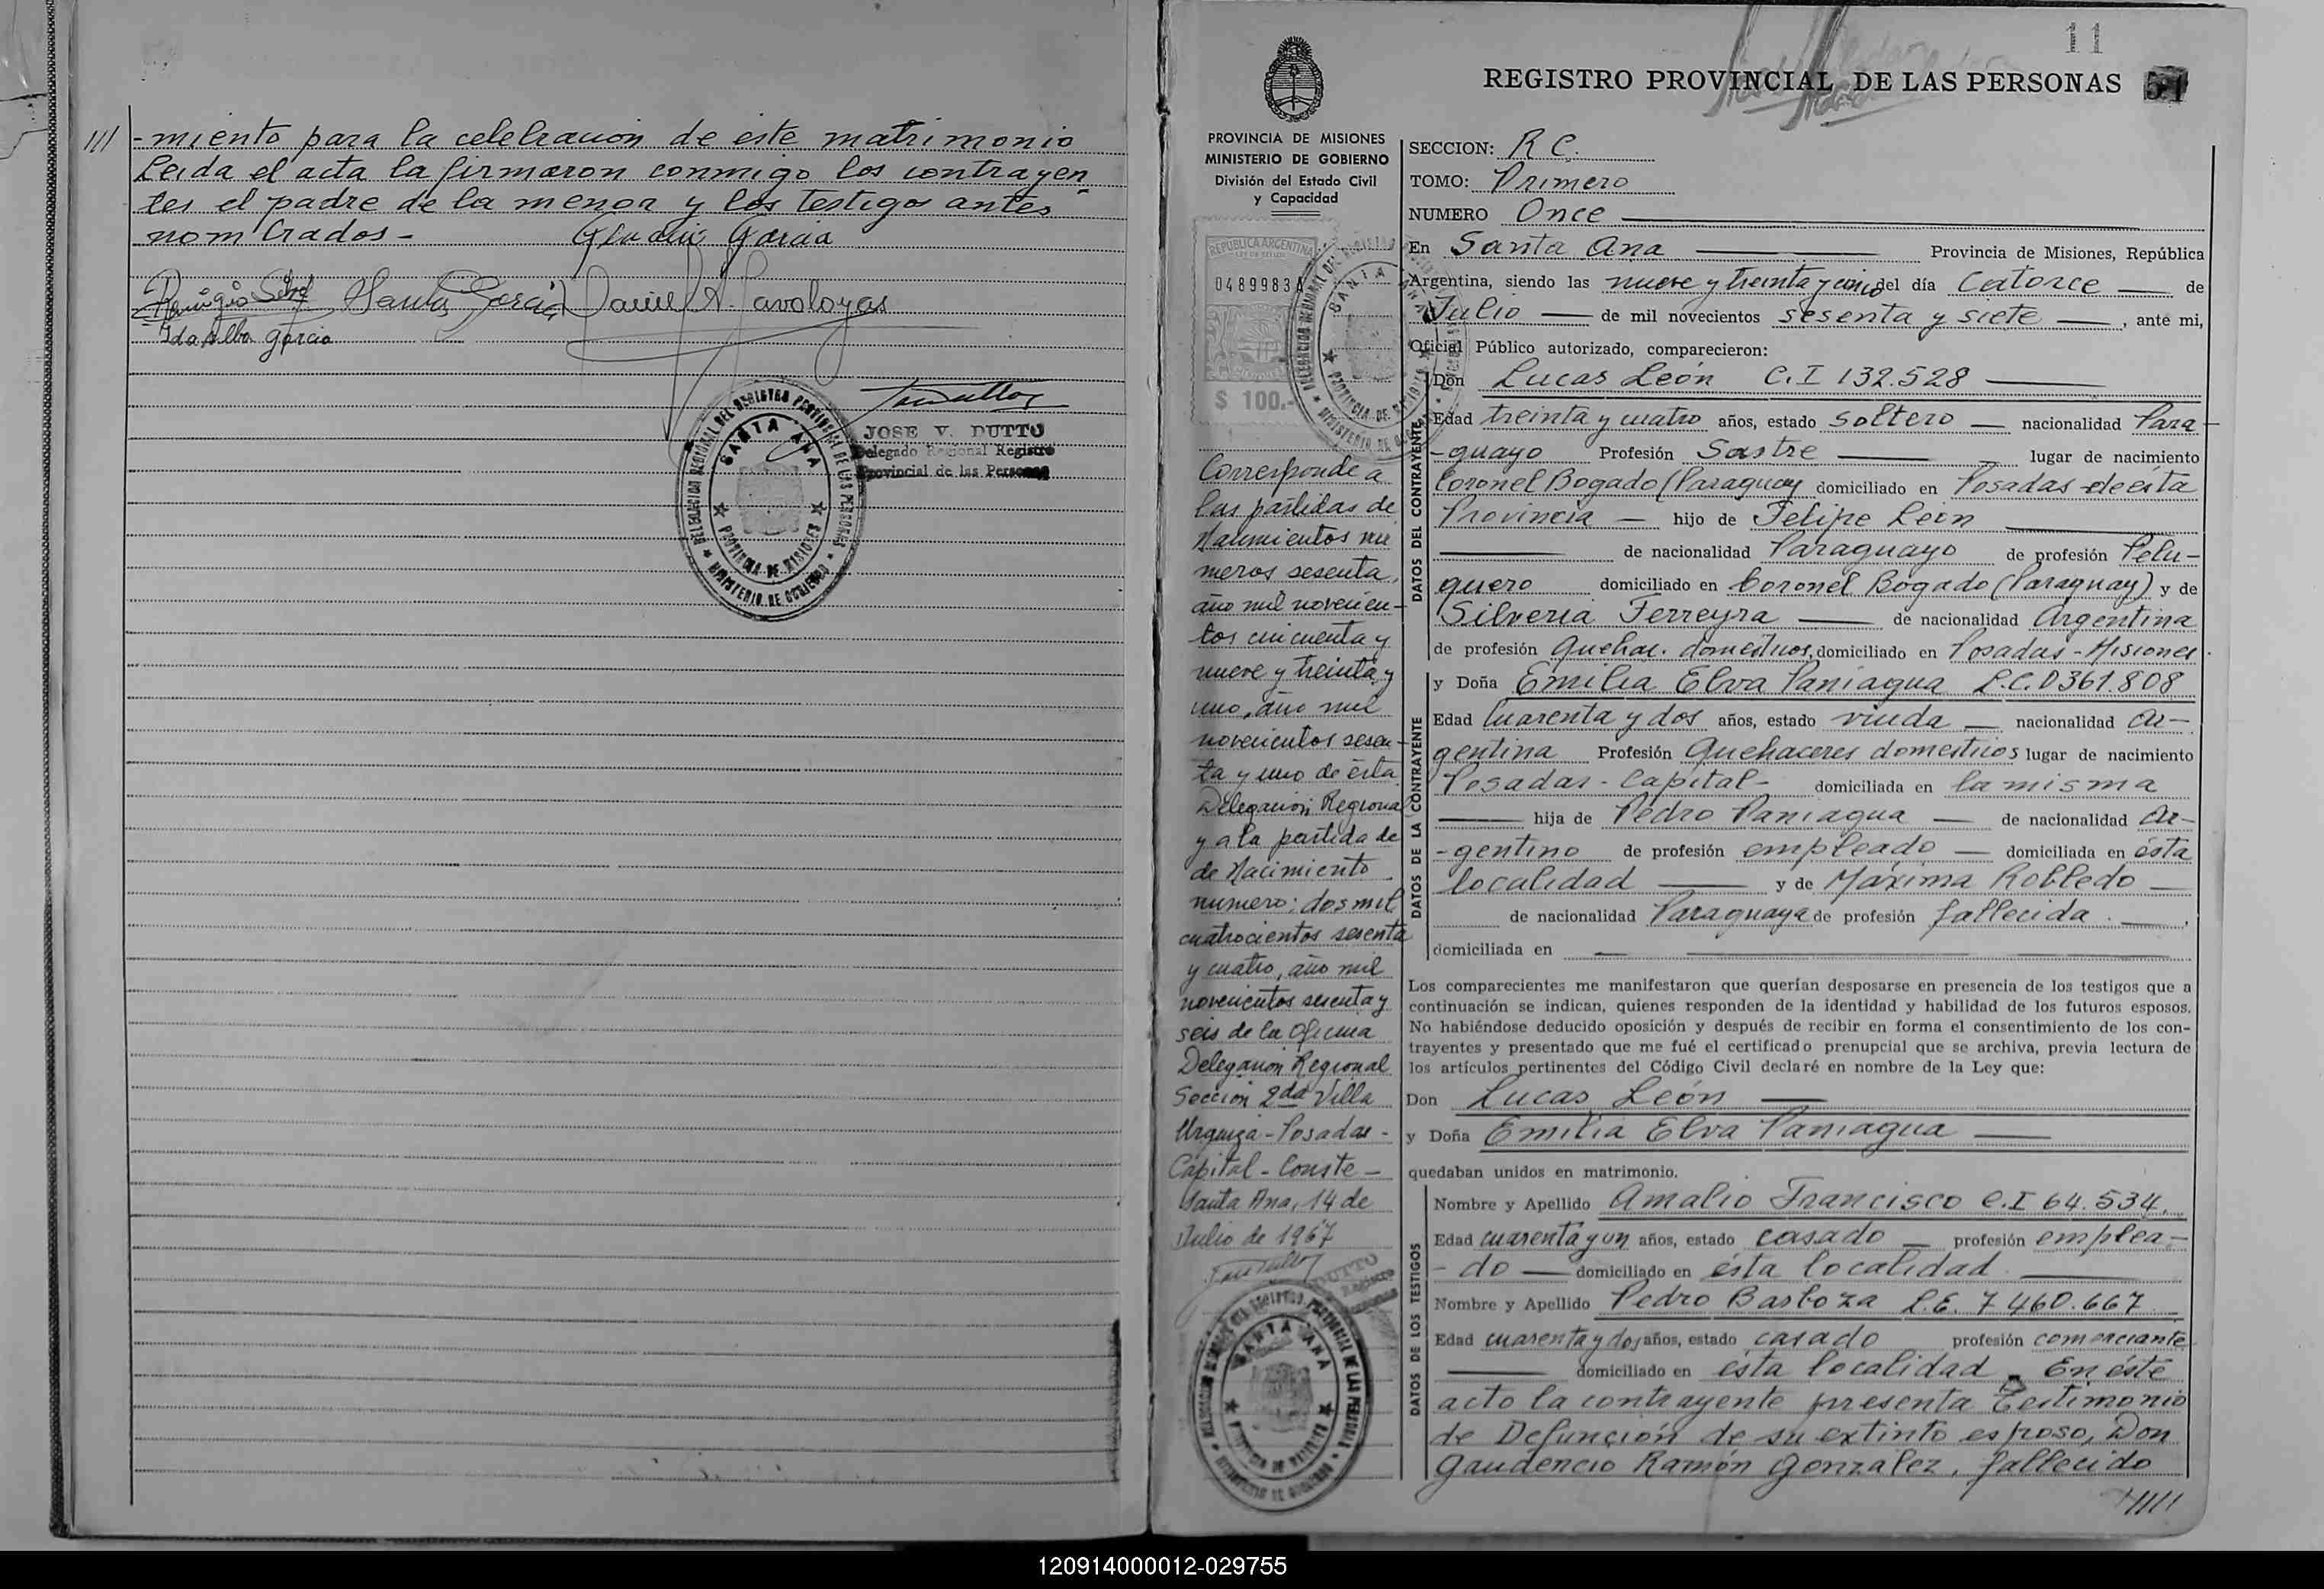 /// -miento para la celebracion de este matrimonio
Leida el acta la firmaron conmigo los contrayen
tes el padre de la menor y los testigos antes
nombrados-
Garcia
Remigio Garcia Daniel A.
Ida Alba Garcia
DELEGACION REGIONAL DEL REGISTRO PROVINCIAL DE LAS PERSONAS
SANTA ANA
PROVINCIA DE MISIONES
MINISTERIO DE GOBIERNO
JOSE V. DUTTO
Delegado Regional Registro
Provincial de las Personas
11
REGISTRO PROVINCIAL DE LAS PERSONAS 51
PROVINCIA DE MISIONES
MINISTERIO DE GOBIERNO
División del Estado Civil
y Capacidad
REPUBLICA ARGENTINA
0489983A
$ 100.-
Corresponde a
las partidas de
Nacimientos nu
meros sesenta,
año mil novecien-
tos cincuenta y
nueve y treinta y
uno, año mil
novecientos sesen-
ta y uno de ésta
Delegación Regional
y a la partida de
de Nacimiento
numero: dos mil
cuatrocientos sesenta
y cuatro, año mil
novecientos sesenta y
seis de la Oficina
Delegación Regional
Sección 2da Villa
Urquiza - Posadas -
Capital - Conste -
Santa Ana, 14 de
Julio de 1967
DUTTO
SANTA ANA
SECCION: R C.
TOMO: Primero
NUMERO Once
En Santa Ana Provincia de Misiones, República
Argentina, siendo las nueve y treinta y cinco del día Catorce de
Julio de mil novecientos sesenta y siete, ante mi,
Oficial Público autorizado, comparecieron:
DATOS DEL CONTRAYENTE
Don Lucas León C.I 132.528
Edad treinta y cuatro años, estado soltero nacionalidad Para-
-guayo Profesión Sastre lugar de nacimiento
Coronel Bogado (Paraguay domiciliado en Posadas de esta
Provincia hijo de Felipe León
de nacionalidad Paraguayo de profesión Pelu-
quero domiciliado en Coronel Bogado (Paraguay) y de
Silveria Ferreyra de nacionalidad Argentina
de profesión Quehac. domésticos, domiciliado en Posadas - Misiones.
DATOS DE LA CONTRAYENTE
y Doña Emilia Elva Paniagua L.C. 0361.808
Edad Cuarenta y dos años, estado viuda nacionalidad Ar-
gentina Profesión Quehaceres domesticos lugar de nacimiento
Posadas - Capital- domiciliada en la misma
hija de Pedro Paniagua de nacionalidad Ar-
-gentino de profesión empleado domiciliada en ésta
localidad y de Máxima Robledo
de nacionalidad Paraguaya de profesión fallecida.
domiciliada en
Los comparecientes me manifestaron que querían desposarse en presencia de los testigos que a
continuación se indican, quienes responden de la identidad y habilidad de los futuros esposos.
No habiéndose deducido oposición y después de recibir en forma el consentimiento de los con-
trayentes y presentado que me fué el certificado prenupcial que se archiva, previa lectura de
los artículos pertinentes del Código Civil declaré en nombre de la Ley que:
Don Lucas León
y Doña Emilia Elva Paniagua
quedaban unidos en matrimonio.
DATOS DE LOS TESTIGOS
Nombre y Apellido Amalio Francisco C.I 64.534.
Edad cuarenta y un años, estado casado profesión emplea-
-do domiciliado en ésta localidad
Nombre y Apellido Pedro Barboza L.E. 7 460.667
Edad cuarenta y dos años, estado casado profesión comerciante
domiciliado en esta localidad - En éste
acto la contrayente presenta Testimonio
de Defunción de su extinto esposo, Don
Gaudencio Ramón Gonzalez, fallecido
////
120914000012-029755